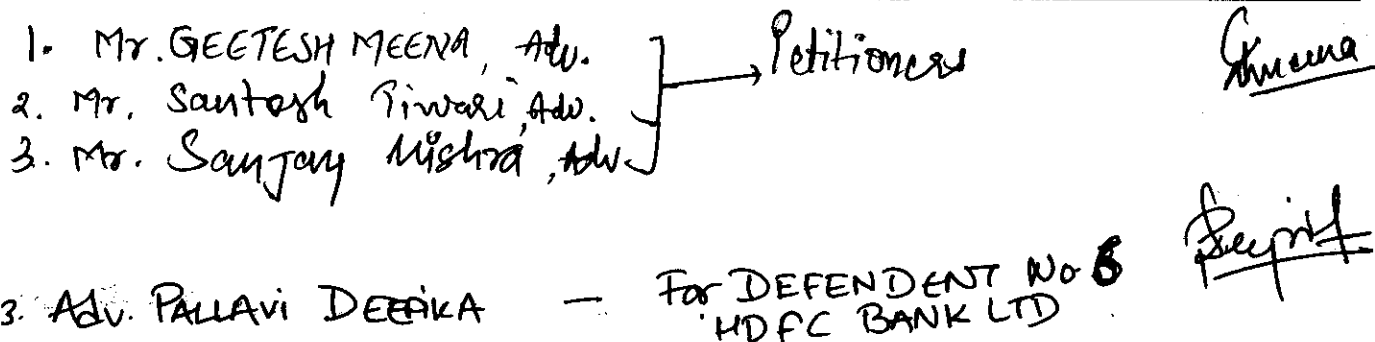 1. Mr. GEETESH MEENA, Adv.
2. Mr. Santosh Tiwari, Adv.
3. Mr. Sanjay Mishra, Adv.
Petitioners
3. Adv. PALLAVI DEEPIKA — For DEFENDENT No 6
HDFC BANK LTD